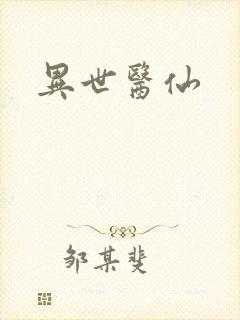 異世醫仙
邹某斐